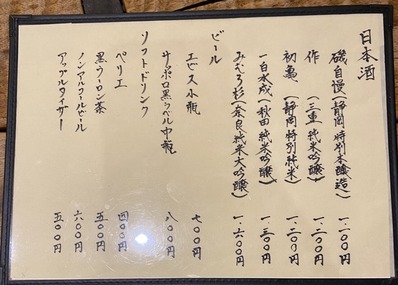 日本酒
磯自慢(静岡 特別本醸造) 一.一〇〇円
作 (三重 純米吟醸) 一.二〇〇円
初亀 (静岡 特別純米) 一.二〇〇円
一白水成(秋田 純米吟醸) 一.三〇〇円
みむろ杉(奈良 純米大吟醸) 一.六〇〇円
ビール
エビス小瓶 七〇〇円
サッポロ黒ラベル中瓶 八〇〇円
ソフトドリンク
ペリエ 四〇〇円
黒ウーロン茶 五〇〇円
ノンアルコールビール 六〇〇円
アップルタイザー 五〇〇円